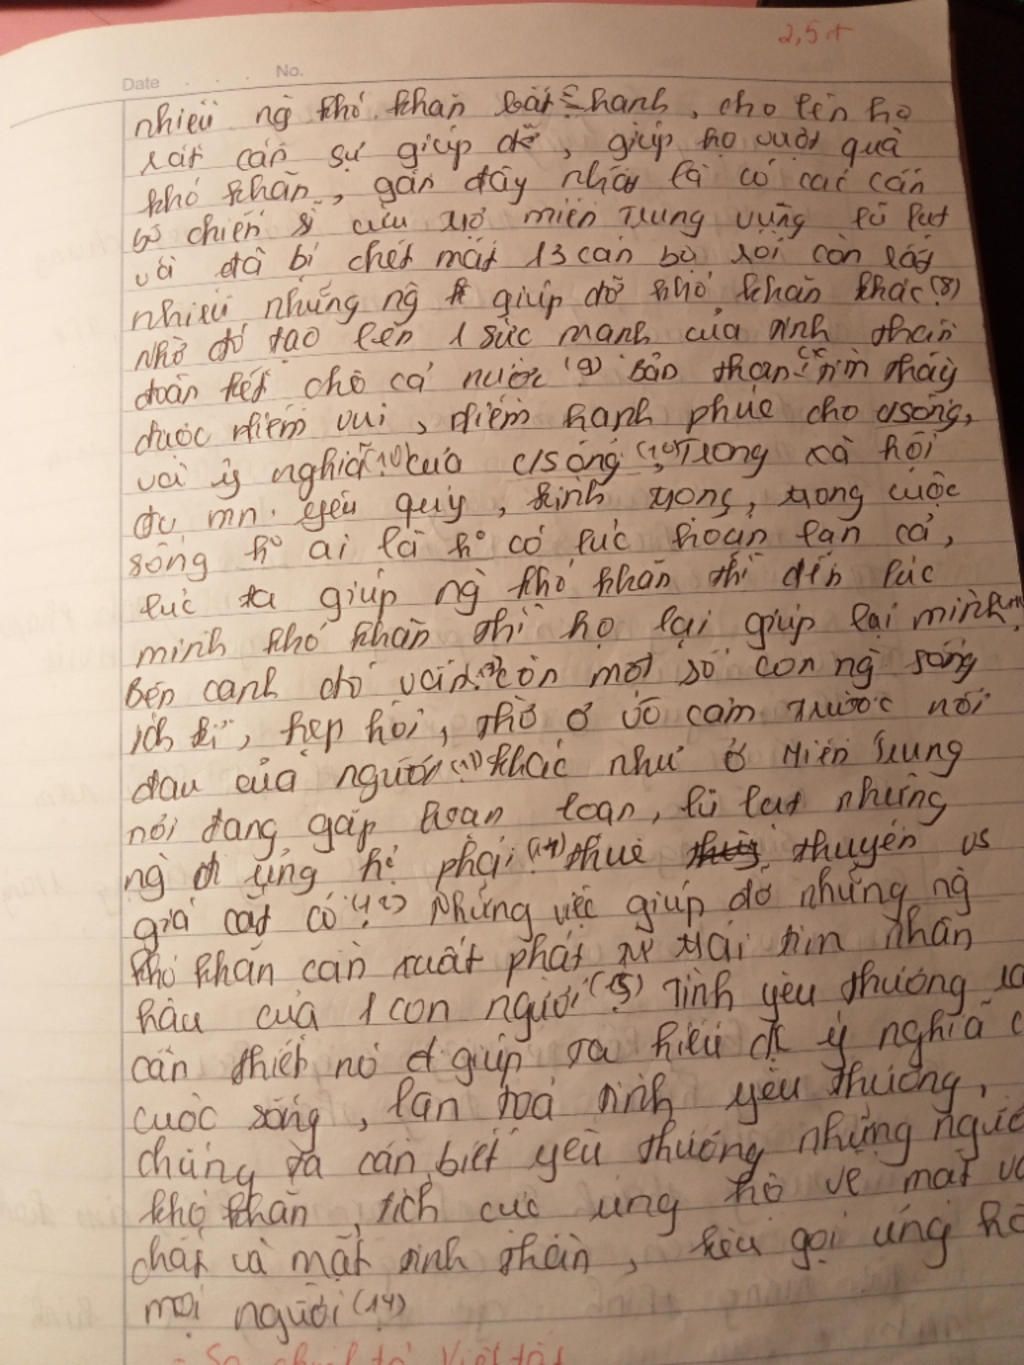 2,5đ
Date . . . No.
nhiều ng khó khăn bất hạnh, cho lên họ
rất cần sự giúp đỡ, giúp họ vượt quà
khó khăn, gần đây nhất là có các cán
bộ chiến sĩ cứu trợ miền Trung vùng lũ lụt
và đã bị chết mất 13 cán bộ rồi còn rất
nhiều những ng giúp đỡ khó khăn khác (8)
Nhờ đó tạo lên 1 sức mạnh của tinh thần
đoàn kết cho cả nước (9) Bản thân tìm thấy
được niềm vui, niềm hạnh phúc cho c/sống,
và ý nghĩa (10) của c/sống (10) Trong xã hội
đc mn. yêu quý, kính trọng, trong cuộc
sống k° ai là k° có lúc hoạn lạn cả,
lúc ta giúp ng khó khăn thì đến lúc
mình khó khăn thì họ lại giúp lại mình
Bên cạnh đó vẫn còn một số con ng sống
ích kỉ, hẹp hòi, thờ ơ vô cảm trước nỗi
đau của người (11) khác như ở Miền Trung
nơi đang gặp hoạn loạn, lũ lụt những
ng đi ủng hộ phải thuê thuyền vs
giá cắt cổ (12) Những việc giúp đỡ những ng
khó khăn cần xuất phát từ trái tim nhân
hậu của 1 con người (13) Tình yêu thương
cần thiết nó giúp ta hiểu đc ý nghĩa
cuộc sống, lan toả tình yêu thương,
chúng ta cần biết yêu thương những người
khó khăn, tích cực ủng hộ về mặt
chất và mặt tinh thần, kêu gọi ủng hộ
mọi người (14)
- Sai chính tả, Viết tắt